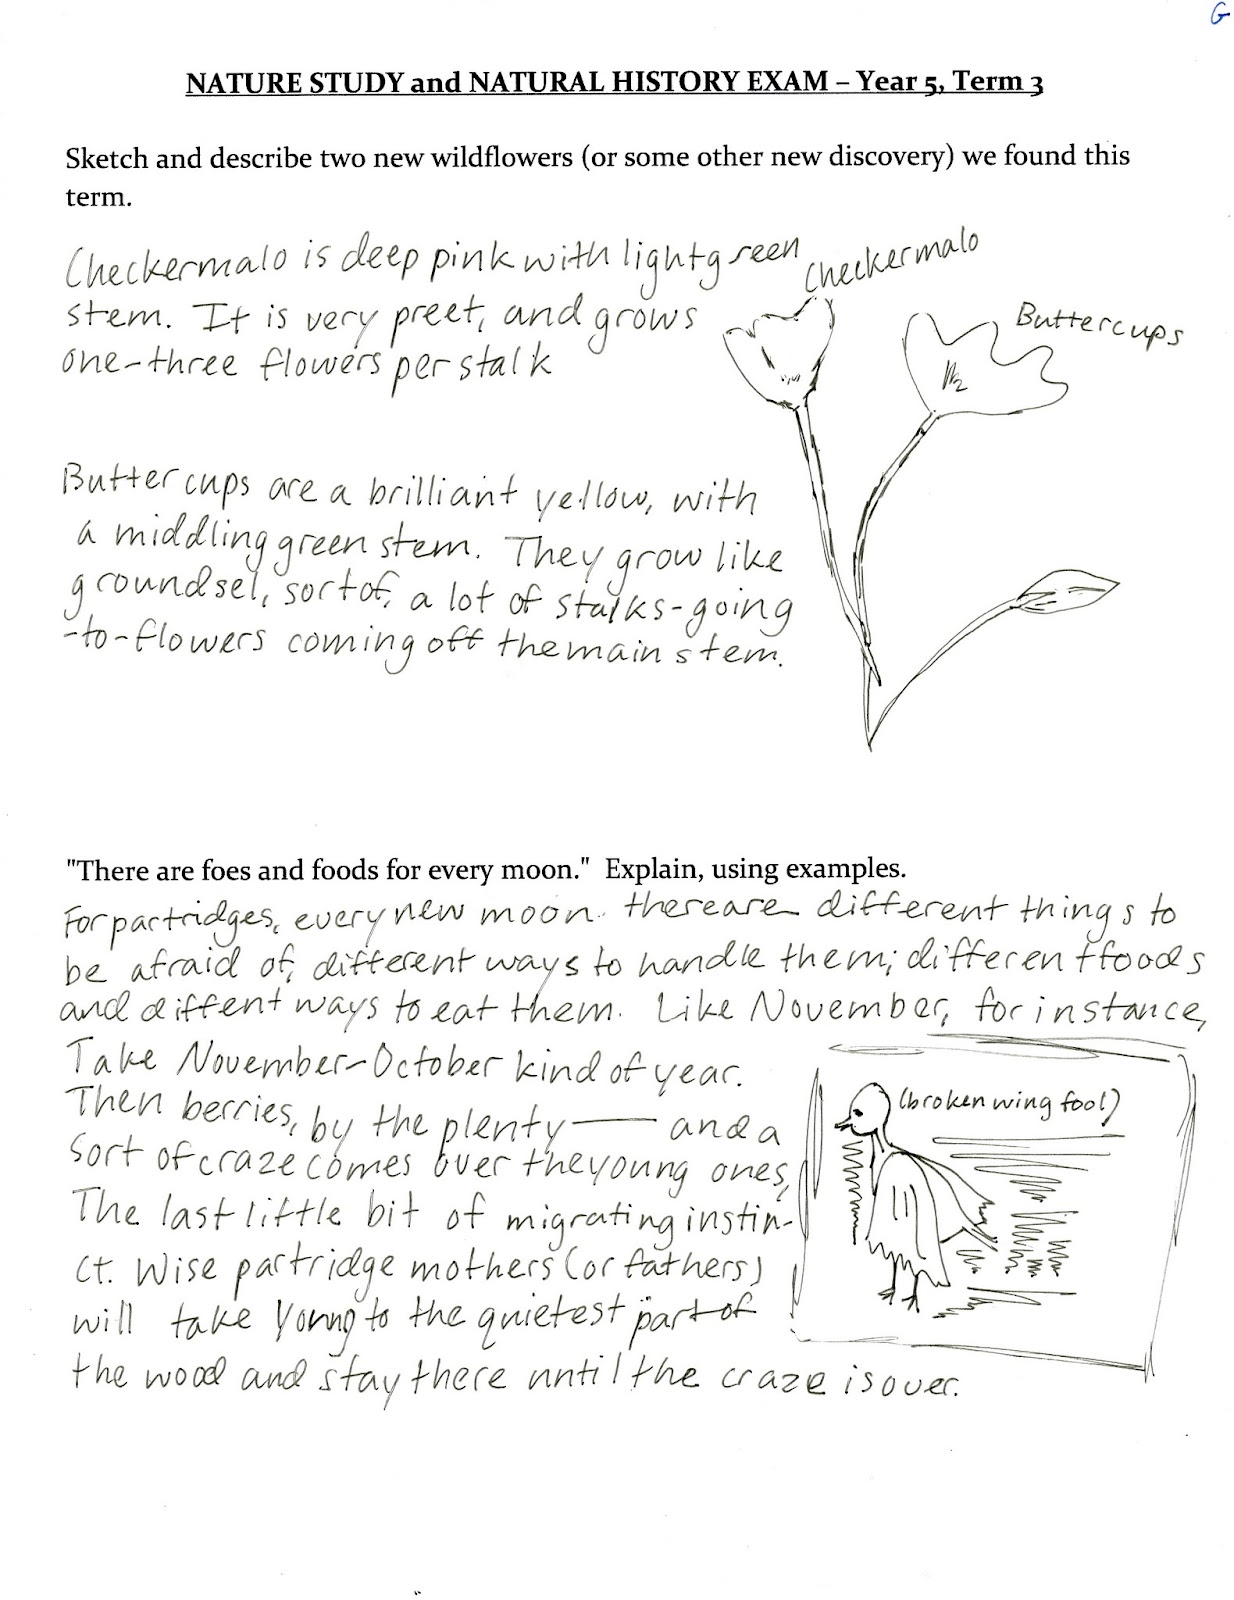 G
NATURE STUDY and NATURAL HISTORY EXAM – Year 5, Term 3
Sketch and describe two new wildflowers (or some other new discovery) we found this
term.
Checkermalo is deep pink with light green
stem. It is very preet, and grows
one-three flowers per stalk
Checkermalo
Buttercups
Buttercups are a brilliant yellow, with
a middling green stem. They grow like
groundsel, sort of, a lot of stalks-going
-to-flowers coming off the main stem.
"There are foes and foods for every moon."  Explain, using examples.
For partridges, every new moon there are different things to
be afraid of, different ways to handle them; different foods
and diffent ways to eat them. Like November, for instance,
Take November-October kind of year.
Then berries, by the plenty — and a
sort of craze comes over the young ones,
The last little bit of migrating instin-
ct. Wise partridge mothers (or fathers)
will take young to the quietest part of
the wood and stay there until the craze is over.
(broken wing fool)